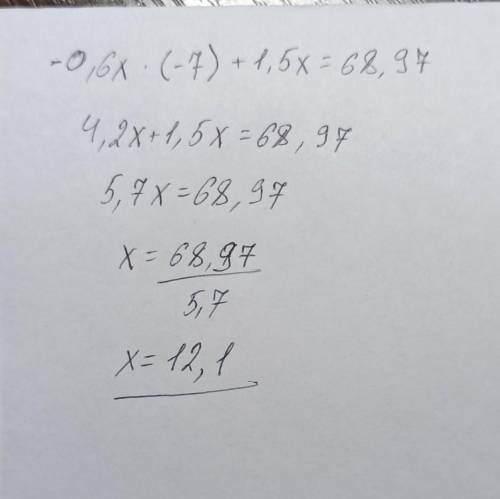 -0,6x · (-7) + 1,5x = 68,97
4,2x + 1,5x = 68,97
5,7x = 68,97
x = 68,97
5,7
x = 12,1